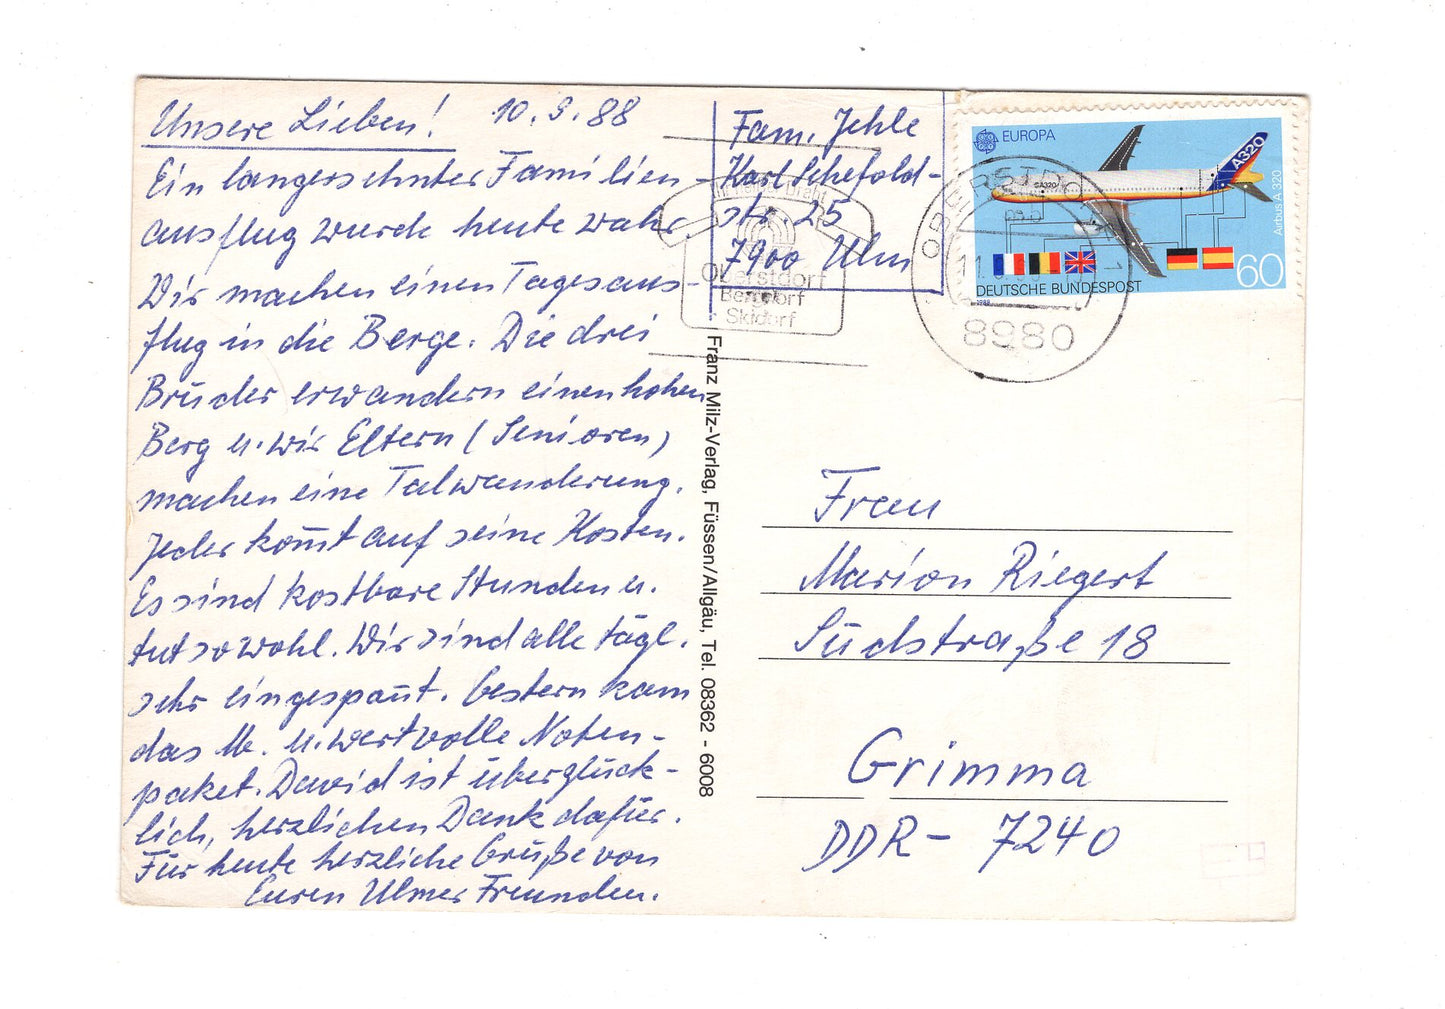 Unsere Lieben! 10.9.88
Ein langersehnter Familien-
ausflug wurde heute wahr.
Wir machen einen Tagesaus-
flug in die Berge. Die drei
Brüder erwandern einen hohen
Berg u. wir Eltern (Senioren)
machen eine Talwanderung.
Jeder kom̅t auf seine Kosten.
Es sind kostbare Stunden u.
tut so wohl. Wir sind alle tägl.
sehr eingespan̅t. Gestern kam
das M. u. wertvolle Noten-
paket. David ist überglück-
lich, herzlichen Dank dafür.
Für heute herzliche Grüße von
Euren Ulmer Freunden.
Fam. Jehle
Karl Schefold-
str. 25
7900 Ulm
Oberstdorf
Bergdorf
Skidorf
Franz Milz-Verlag, Füssen/Allgäu, Tel. 08362 - 6008
EUROPA
A320
Airbus A 320
60
DEUTSCHE BUNDESPOST
1988
OBERSTDORF
8980
Frau
Marion Riegert
Südstraße 18
Grimma
DDR- 7240